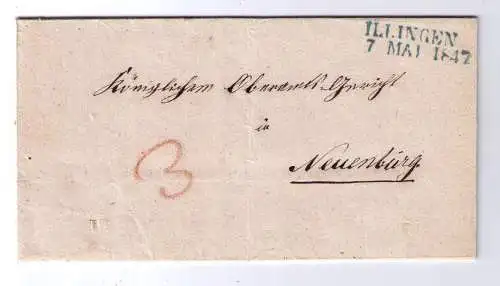 ILLINGEN
7 MAI 1847
Königlichem Oberamts-Gericht
in
Neuenbürg.
3